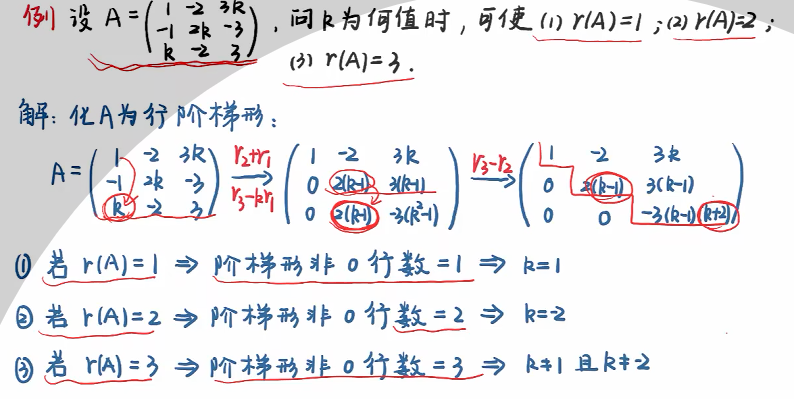 例1 设 A=(1 -2 3k; -1 2k -3; k -2 3), 问k为何值时, 可使 (1) r(A)=1; (2) r(A)=2;
(3) r(A)=3.
解: 化A为行阶梯形:
A=(1 -2 3k; -1 2k -3; k -2 3) r₂+r₁ r₃-kr₁ → (1 -2 3k; 0 2(k-1) 3(k-1); 0 2(k-1) -3(k²-1)) r₃-r₂ → (1 -2 3k; 0 2(k-1) 3(k-1); 0 0 -3(k-1)(k+2))
① 若 r(A)=1 ⇒ 阶梯形非0行数=1 ⇒ k=1
② 若 r(A)=2 ⇒ 阶梯形非0行数=2 ⇒ k=-2
③ 若 r(A)=3 ⇒ 阶梯形非0行数=3 ⇒ k≠1 且 k≠-2